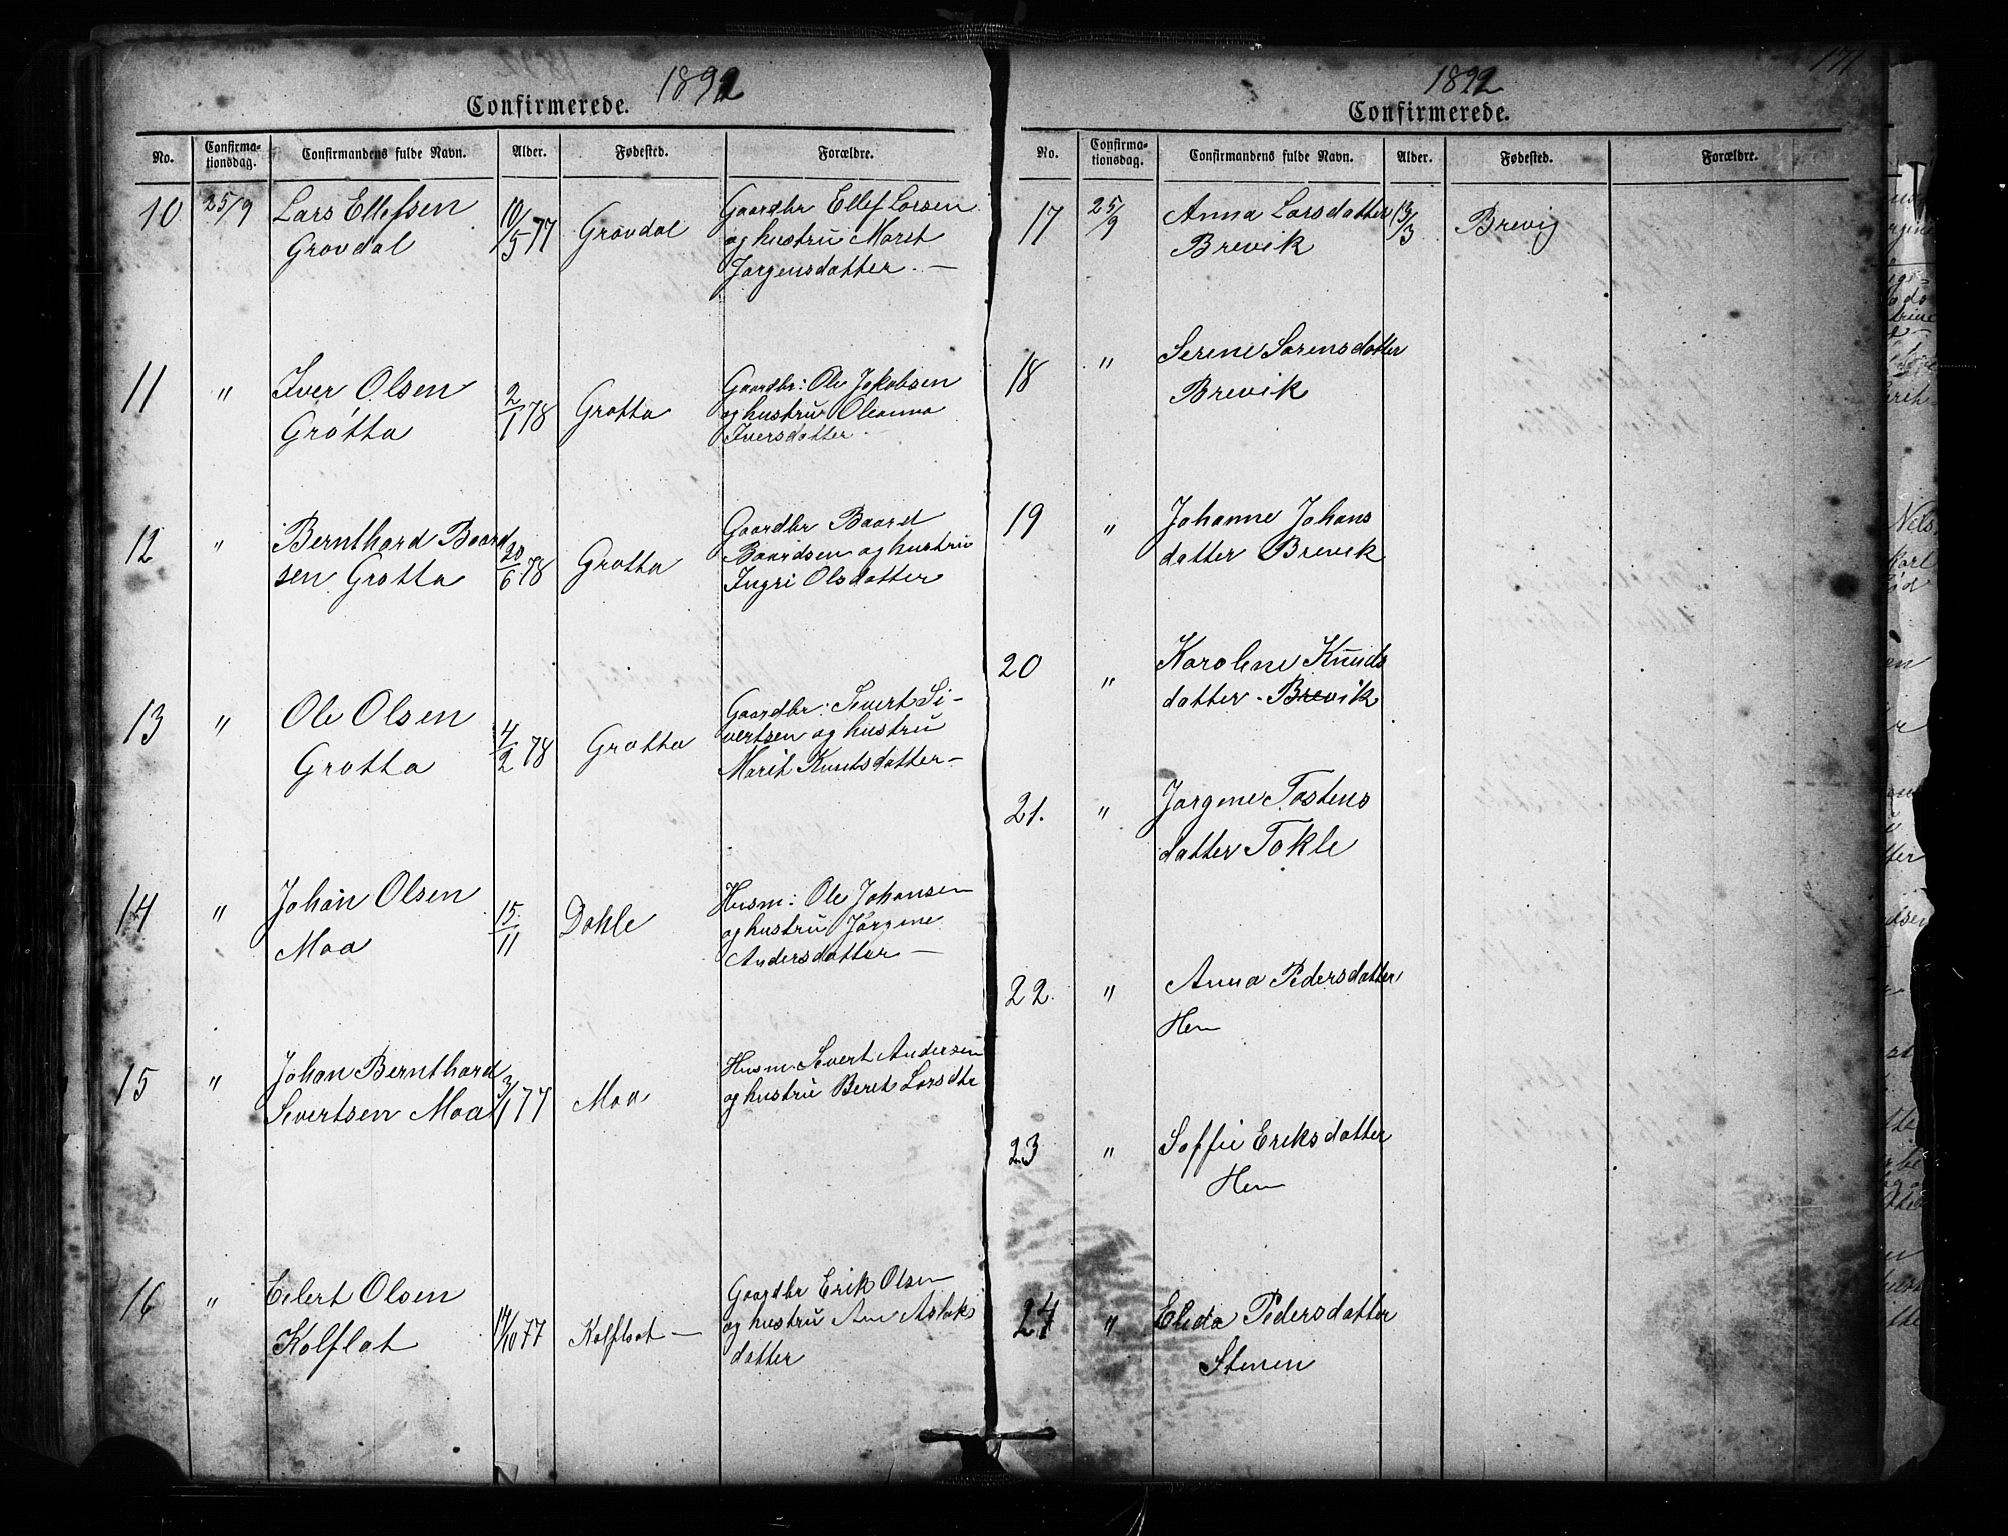 1892
Confirmerede.
No. Confirmationsdag. Confirmandens fulde Navn. Alder. Fødested. Forældre.
10 25/9 Lars Ellefsen 10/5 77 Grovdal Gaardbr Ellef Larsen
Grovdal og hustru Maret
Jorgensdatter. —
11 " Iver Olsen 2/1 78 Grotta Gaardbr: Ole Jakobsen
Gròtta og hustru Oleanna
Iversdatter —
12 " Bernthard Baard 20/6 78 Grotta Gaardbr Baard
sen Grotta Baardsen og hustru
Ingri Olsdatter
13 " Ole Olsen 4/2 78 Grotta Gaardbr: Sivert Si-
Grotta vertsen og hustru
Marit Knutsdatter—
14 " Johan Olsen 15/11 Dahle Husm: Ole Johansen
Moa og hustru Jørgine
Andersdatter —
15 " Johan Bernthard 3/1 77 Moa Husm. Sivert Andersen
Sivertsen Moa og hustru Beret Larsdtr
16 " Eilert Olsen 14/10 77 Kolfloot — Gaardbr Erik Olsen
Kolflot og hustru Ane Aslak
datter
171
1892
Confirmerede.
No. Confirmationsdag. Confirmandens fulde Navn. Alder. Fødested. Forældre.
17 25/9 Anna Larsdatter 13/3 Brevig
Brevik
18 " Serine Sorensdatter
Brevik
19 " Johanne Johans
datter Brevik
20 " Karoline Knuds
datter - Brevik
21. " Jorgine Tostens
datter Tokle
22. " Anna Pedersdatter
Hen
23 " Soffie Eriksdatter
Hen
24 " Elida Pedersdatter
Stenen